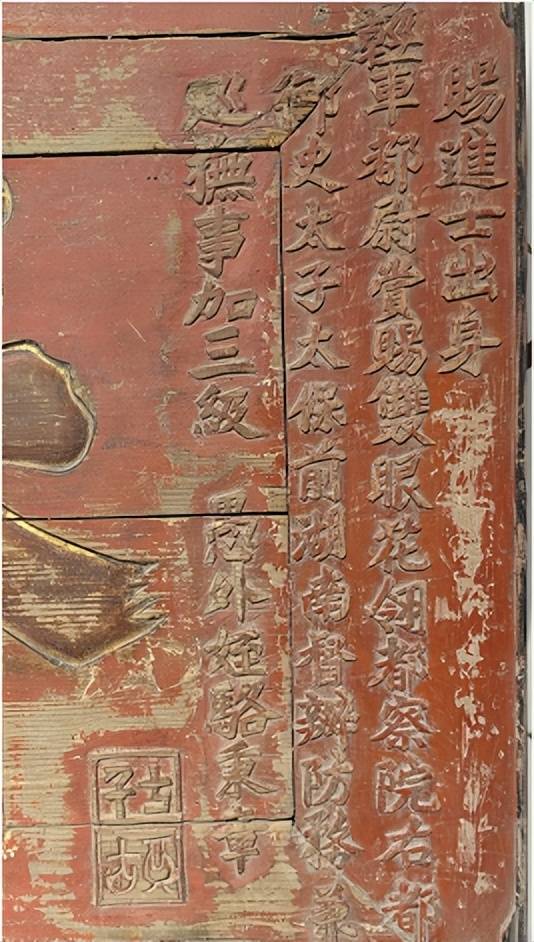 賜進士出身
輕車都尉賞賜雙眼花翎都察院右都
御史太子太保前湖南督辦防務兼
巡撫事加三級 愚外姪駱秉章